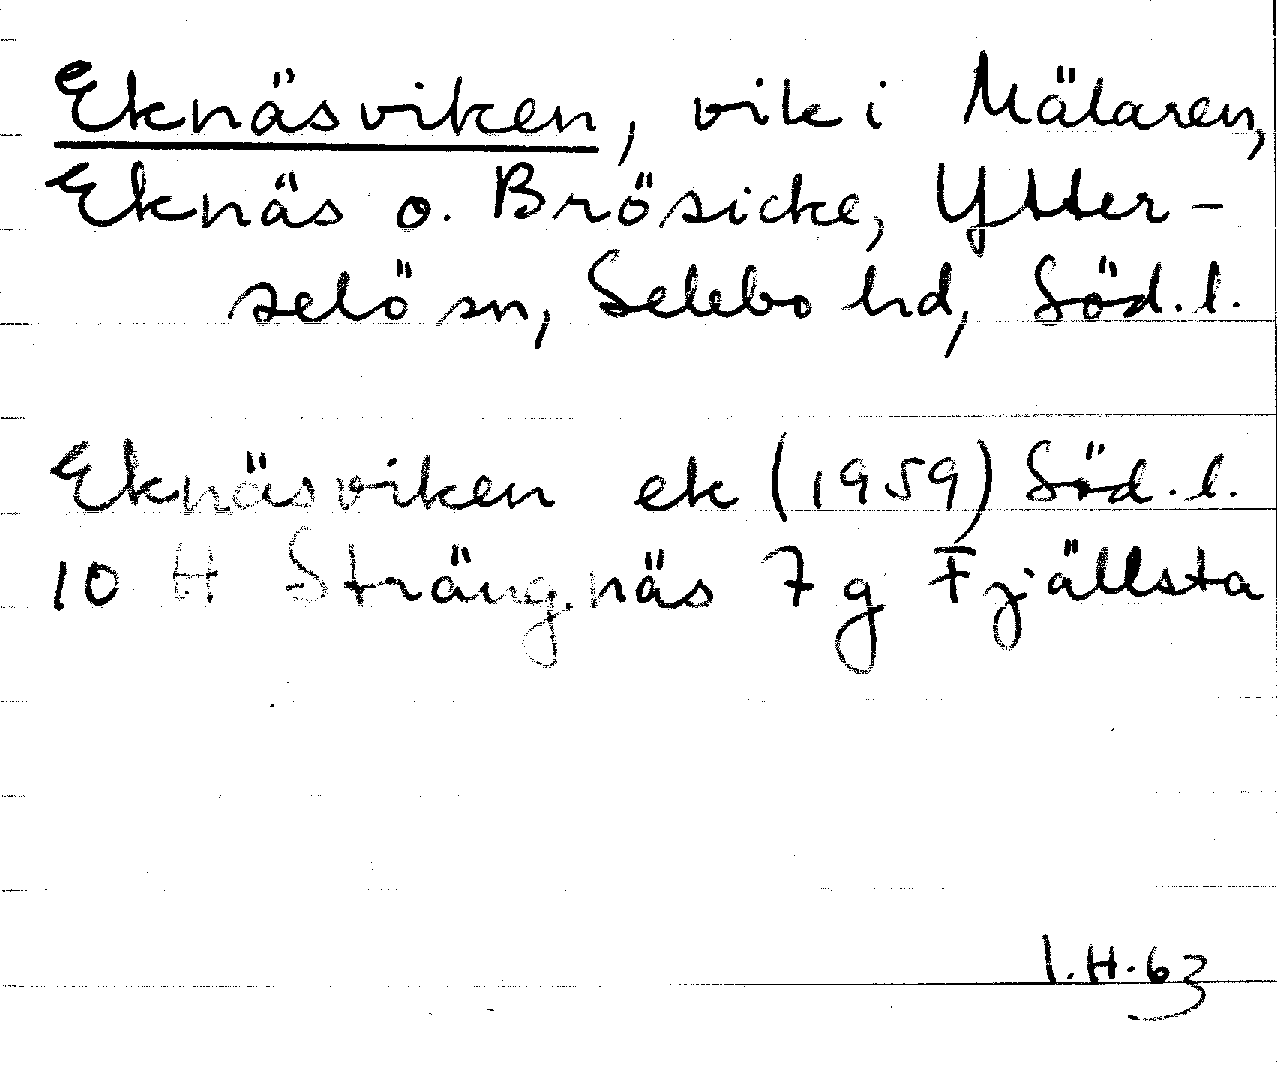 Eknäsviken, vik i Mälaren,
Eknäs o. Brösicke, Ytter-
selö sn, Selebo hd, Söd. l.
Eknäsviken ek (1959) Söd. l.
10 H Strängnäs 7 g Fjällsta
I. H. 63